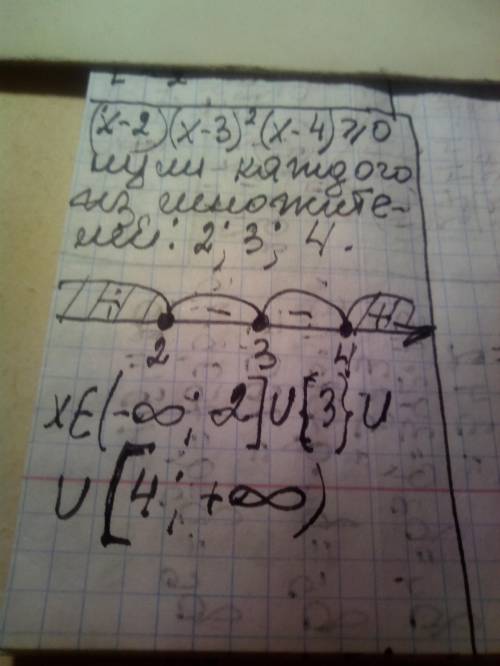 (x-2)(x-3)²(x-4)≥0
нули каждого
из множите-
лей: 2; 3; 4.
+ - - +
2 3 4
x∈(-∞; 2]∪{3}∪
∪[4; +∞)